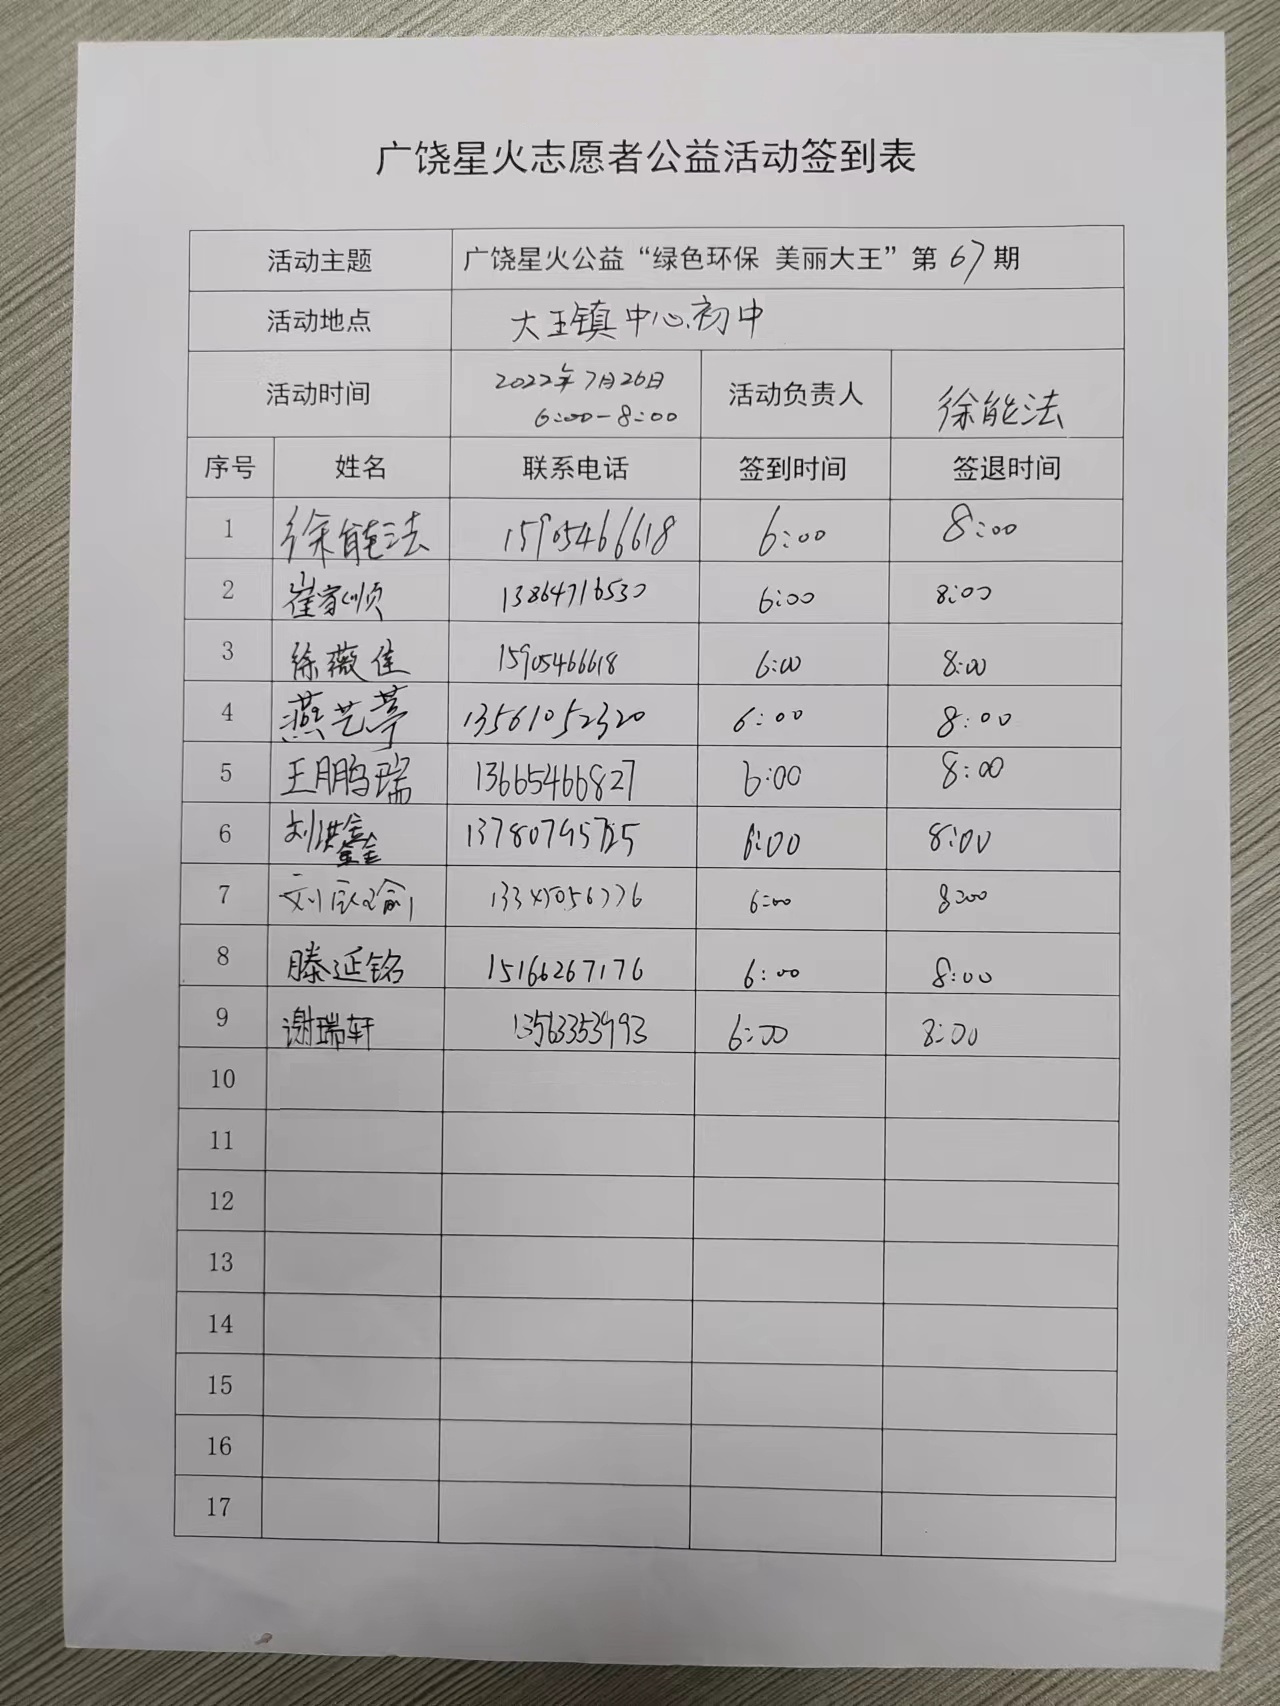 广饶星火志愿者公益活动签到表
活动主题 广饶星火公益“绿色环保 美丽大王”第67期
活动地点 大王镇中心初中
活动时间 2022年7月26日 6:00-8:00 活动负责人 徐能法
序号 姓名 联系电话 签到时间 签退时间
1 徐能法 15905466618 6:00 8:00
2 崔家顺 13864716530 6:00 8:00
3 徐薇佳 15905466618 6:00 8:00
4 燕艺葶 13561052320 6:00 8:00
5 王鹏瑞 13665466827 6:00 8:00
6 刘洪鑫 6:00 8:00
7 6:00 8:00
8 滕延铭 15166267176 6:00 8:00
9 谢瑞轩 13563353993 6:00 8:00
10
11
12
13
14
15
16
17